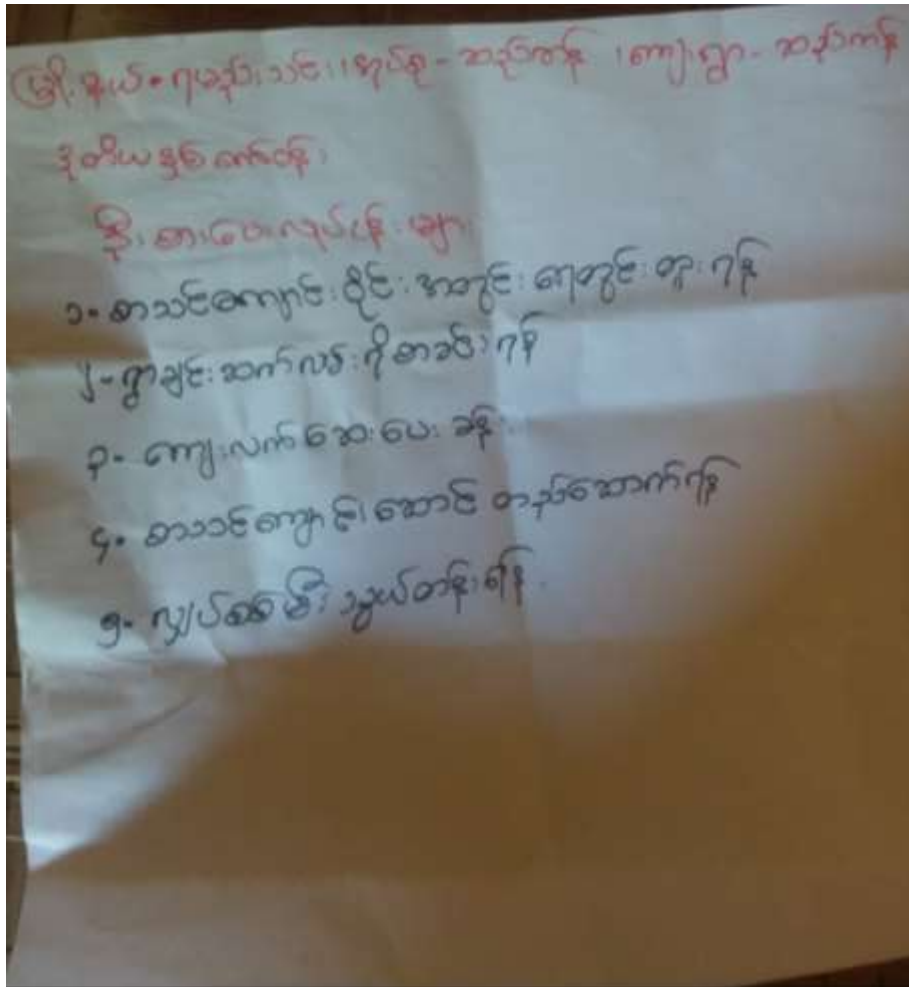 မြို့နယ်-ရမည်းသင်း၊အုပ်စု-ဆည်ကန် ၊ကျေးရွာ-ဆည်ကန်
ဒုတိယနှစ်စက်ဝန်း
ဦးစားပေးလုပ်ငန်းများ
၁-စာသင်ကျောင်းဝိုင်းအတွင်းရေတွင်းတူးရန်
၂-ရွာချင်းဆက်လမ်း
၃-ကျေးလက်ဆေးပေးခန်း
၄-စာသင်ကျောင်းဆောင်တည်ဆောက်ရန်
၅-လျှပ်စစ်မီးသွယ်တန်းရန်